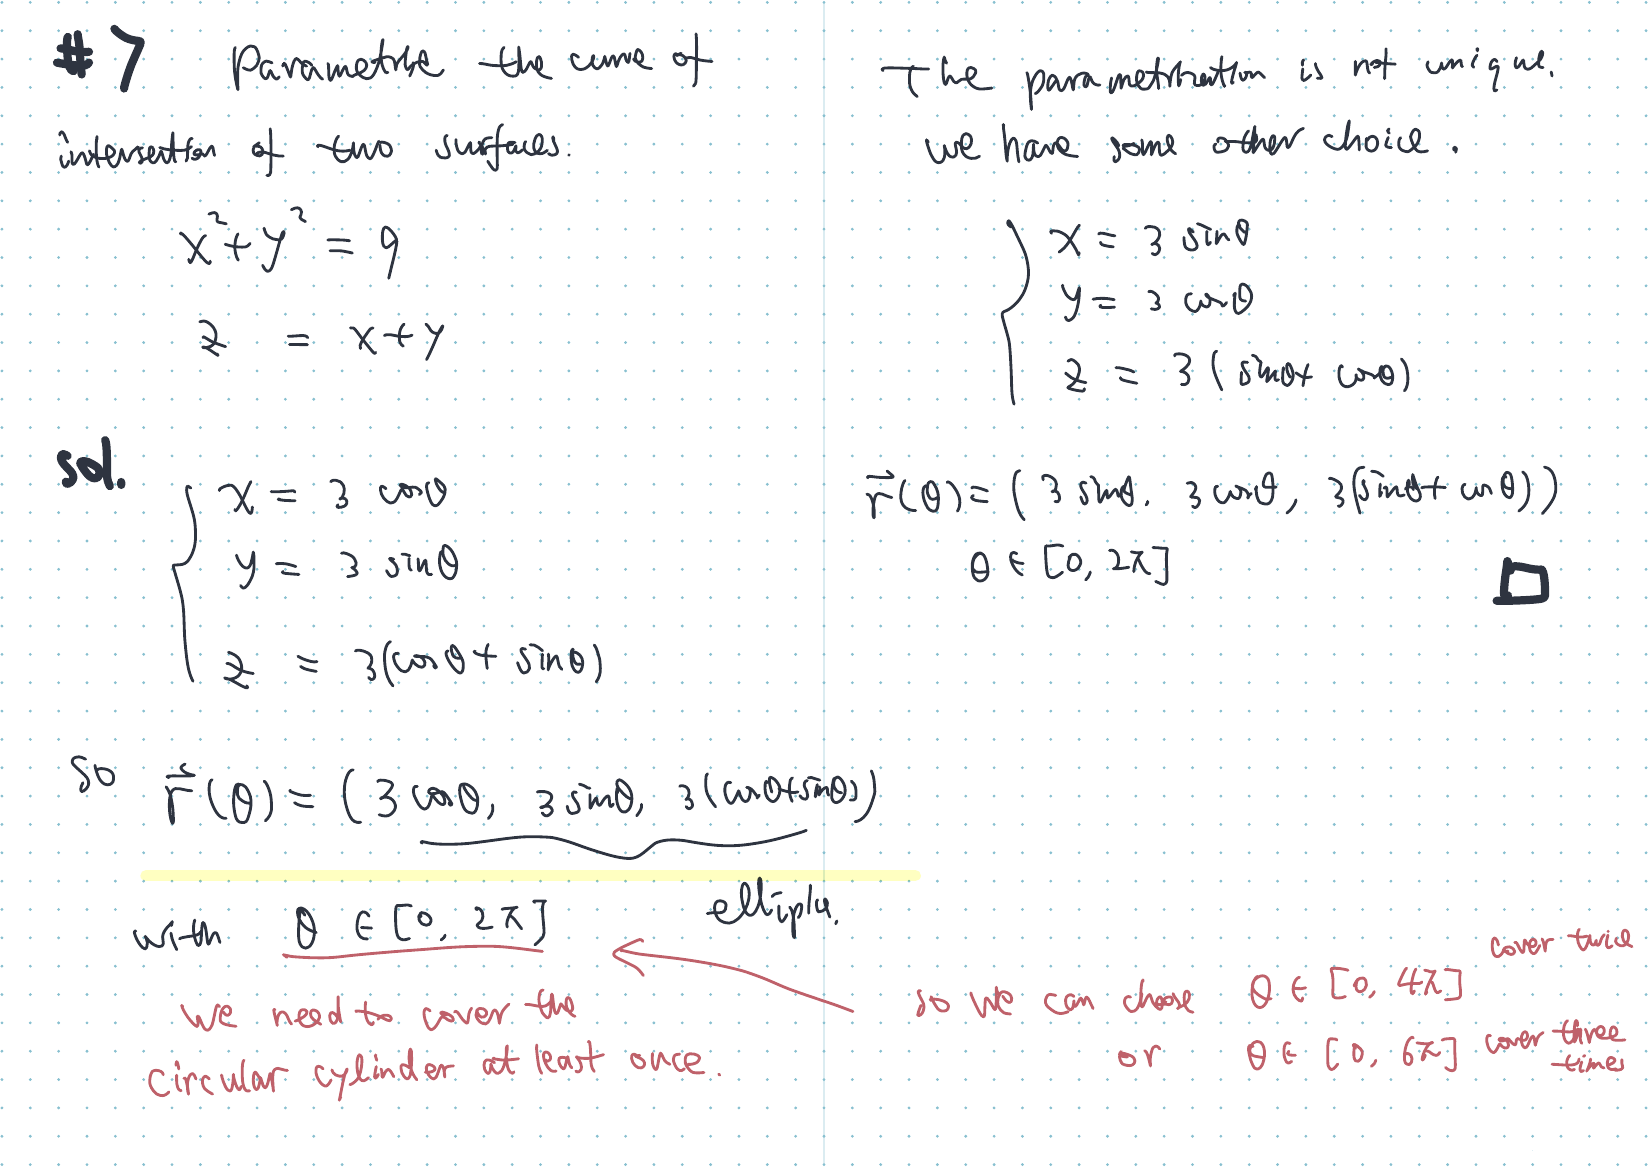 #7 Parametrize the curve of
intersection of two surfaces.
x² + y² = 9
z = x+y
sol.
x = 3 cosθ
y = 3 sinθ
z = 3(cosθ + sinθ)
so r⃗(θ) = (3 cosθ, 3 sinθ, 3(cosθ+sinθ))
ellipse.
with θ ∈ [0, 2π]
We need to cover the
circular cylinder at least once.
The parametrization is not unique.
we have some other choice.
x = 3 sinθ
y = 3 cosθ
z = 3 ( sinθ + cosθ)
r⃗(θ) = ( 3 sinθ, 3 cosθ, 3(sinθ + cosθ))
θ ∈ [0, 2π]
so we can choose θ ∈ [0, 4π] cover twice
or θ ∈ [0, 6π] cover three
times